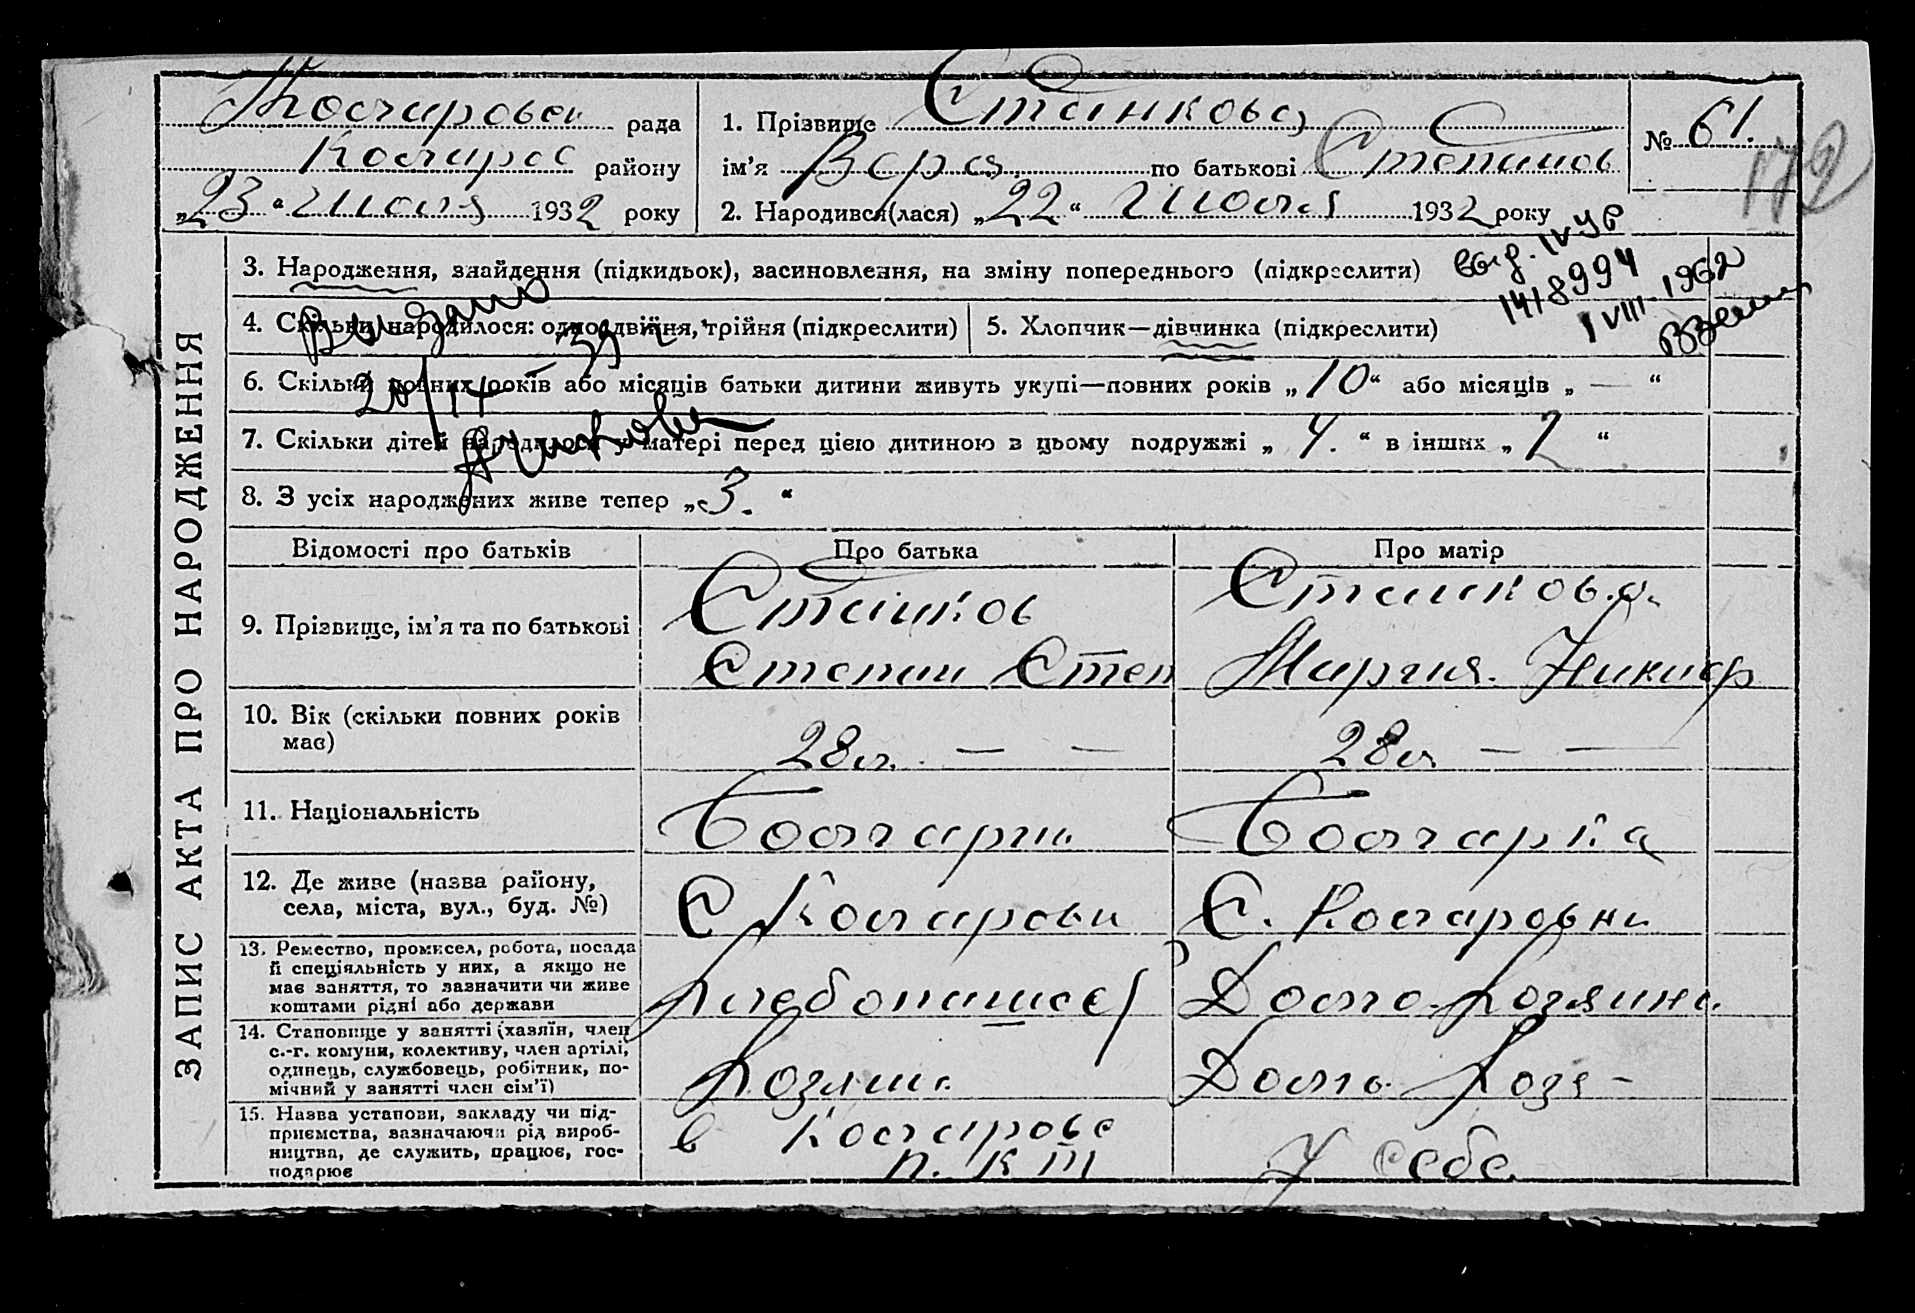 рада
района Коларов
району
„23“ Июля 1932 року
1. Прізвище Станкова
ім’я Вера по батькові Степанов
2. Народився(лася) „22“ Июля 1932 року
№ 61.
172
ЗАПИС АКТА ПРО НАРОДЖЕННЯ
3. Народження, знайдення (підкидьок), засиновлення, на зміну попереднього (підкреслити)
выд. IV УР
1418994
1 VIII 1962
4. Скільки народилося: одно, двійня, трійня (підкреслити)
5. Хлопчик—дівчинка (підкреслити)
Видано
6. Скільки повних років або місяців батьки дитини живуть укупі—повних років „10“ або місяців „ — “
7. Скільки дітей народилося у матері перед цією дитиною в цьому подружжі „4.“ в інших „ “
8. З усіх народжених живе тепер „3.“
Відомості про батьків
Про батька
Про матір
9. Прізвище, ім’я та по батькові
Станков
Степан Степ
Станкова.
Мария. Никиф
10. Вік (скільки повних років має)
28 л. — —
28 л — —
11. Національність
Болгарин
Болгарка
12. Де живе (назва району, села, міста, вул., буд. №)
С Коларовка
С. Коларовка
13. Ремество, промисел, робота, посада
й спеціяльність у них, а якщо не
має заняття, то зазначити чи живе
коштами рідні або держави
Хлебопашес
Домо-хозяина
14. Становище у занятті (хазяїн, член
с.-г. комуни, колективу, член артілі,
одинець, службовець, робітник, по-
мічний у занятті член сім’ї)
Хозяин
Домо. Хозя-
15. Назва установи, закладу чи під-
приємства, зазначаючи рід вироб-
ництва, де служить, працює, гос-
подарює
в Коларовс
У себе.